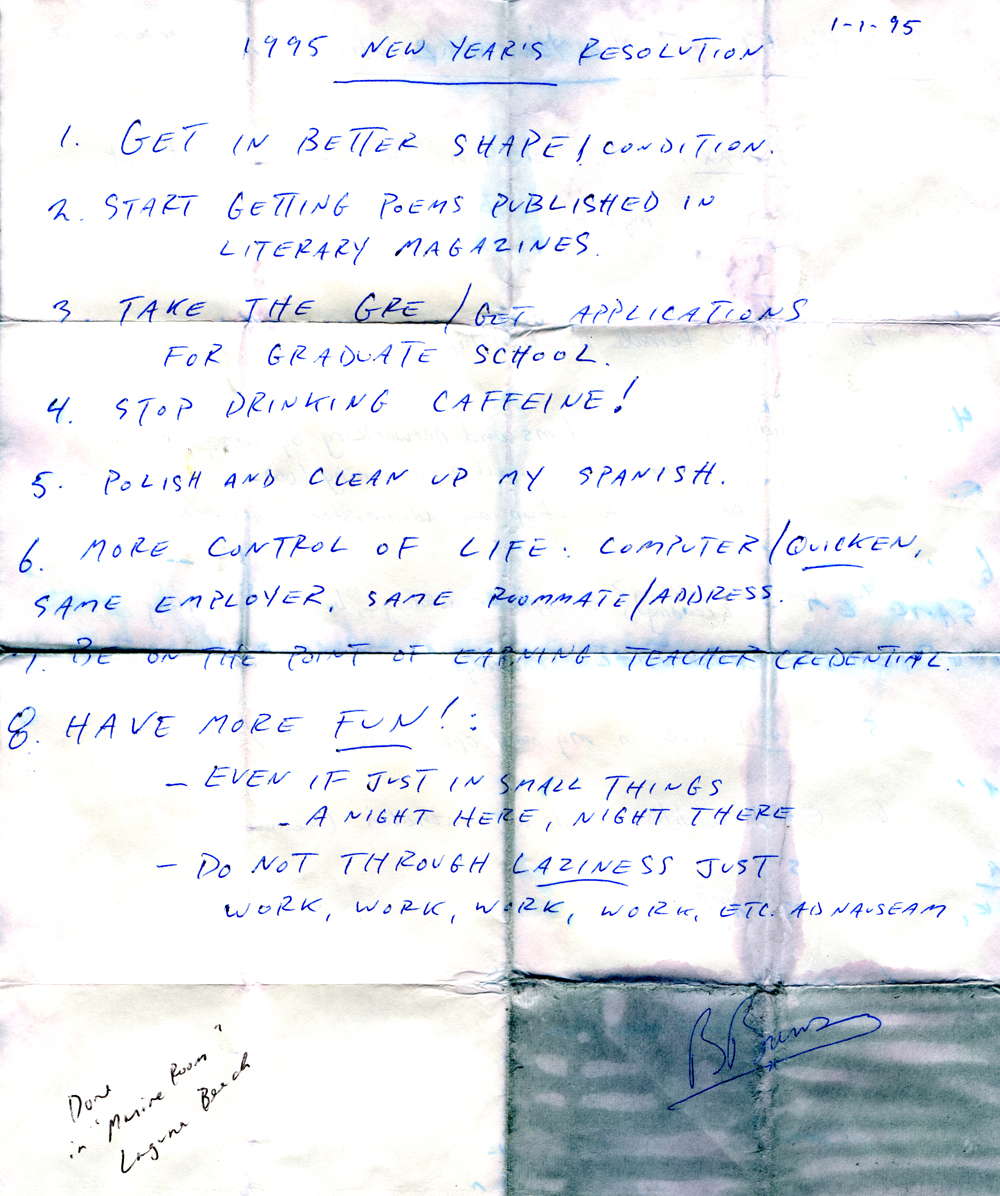 1-1-95
1995 NEW YEAR'S RESOLUTION
1. GET IN BETTER SHAPE/CONDITION.
2. START GETTING POEMS PUBLISHED IN
LITERARY MAGAZINES.
3. TAKE THE GRE/GET APPLICATIONS
FOR GRADUATE SCHOOL.
4. STOP DRINKING CAFFEINE!
5. POLISH AND CLEAN UP MY SPANISH.
6. MORE CONTROL OF LIFE. COMPUTER/QUICKEN,
SAME EMPLOYER, SAME ROOMMATE/ADDRESS.
7. BE ON THE POINT OF EARNING TEACHER CREDENTIAL.
8. HAVE MORE FUN!:
- EVEN IF JUST IN SMALL THINGS
- A NIGHT HERE, NIGHT THERE
- DO NOT THROUGH LAZINESS JUST
WORK, WORK, WORK, WORK, ETC. AD NAUSEAM
Done
in "Marine Room"
Laguna Beach